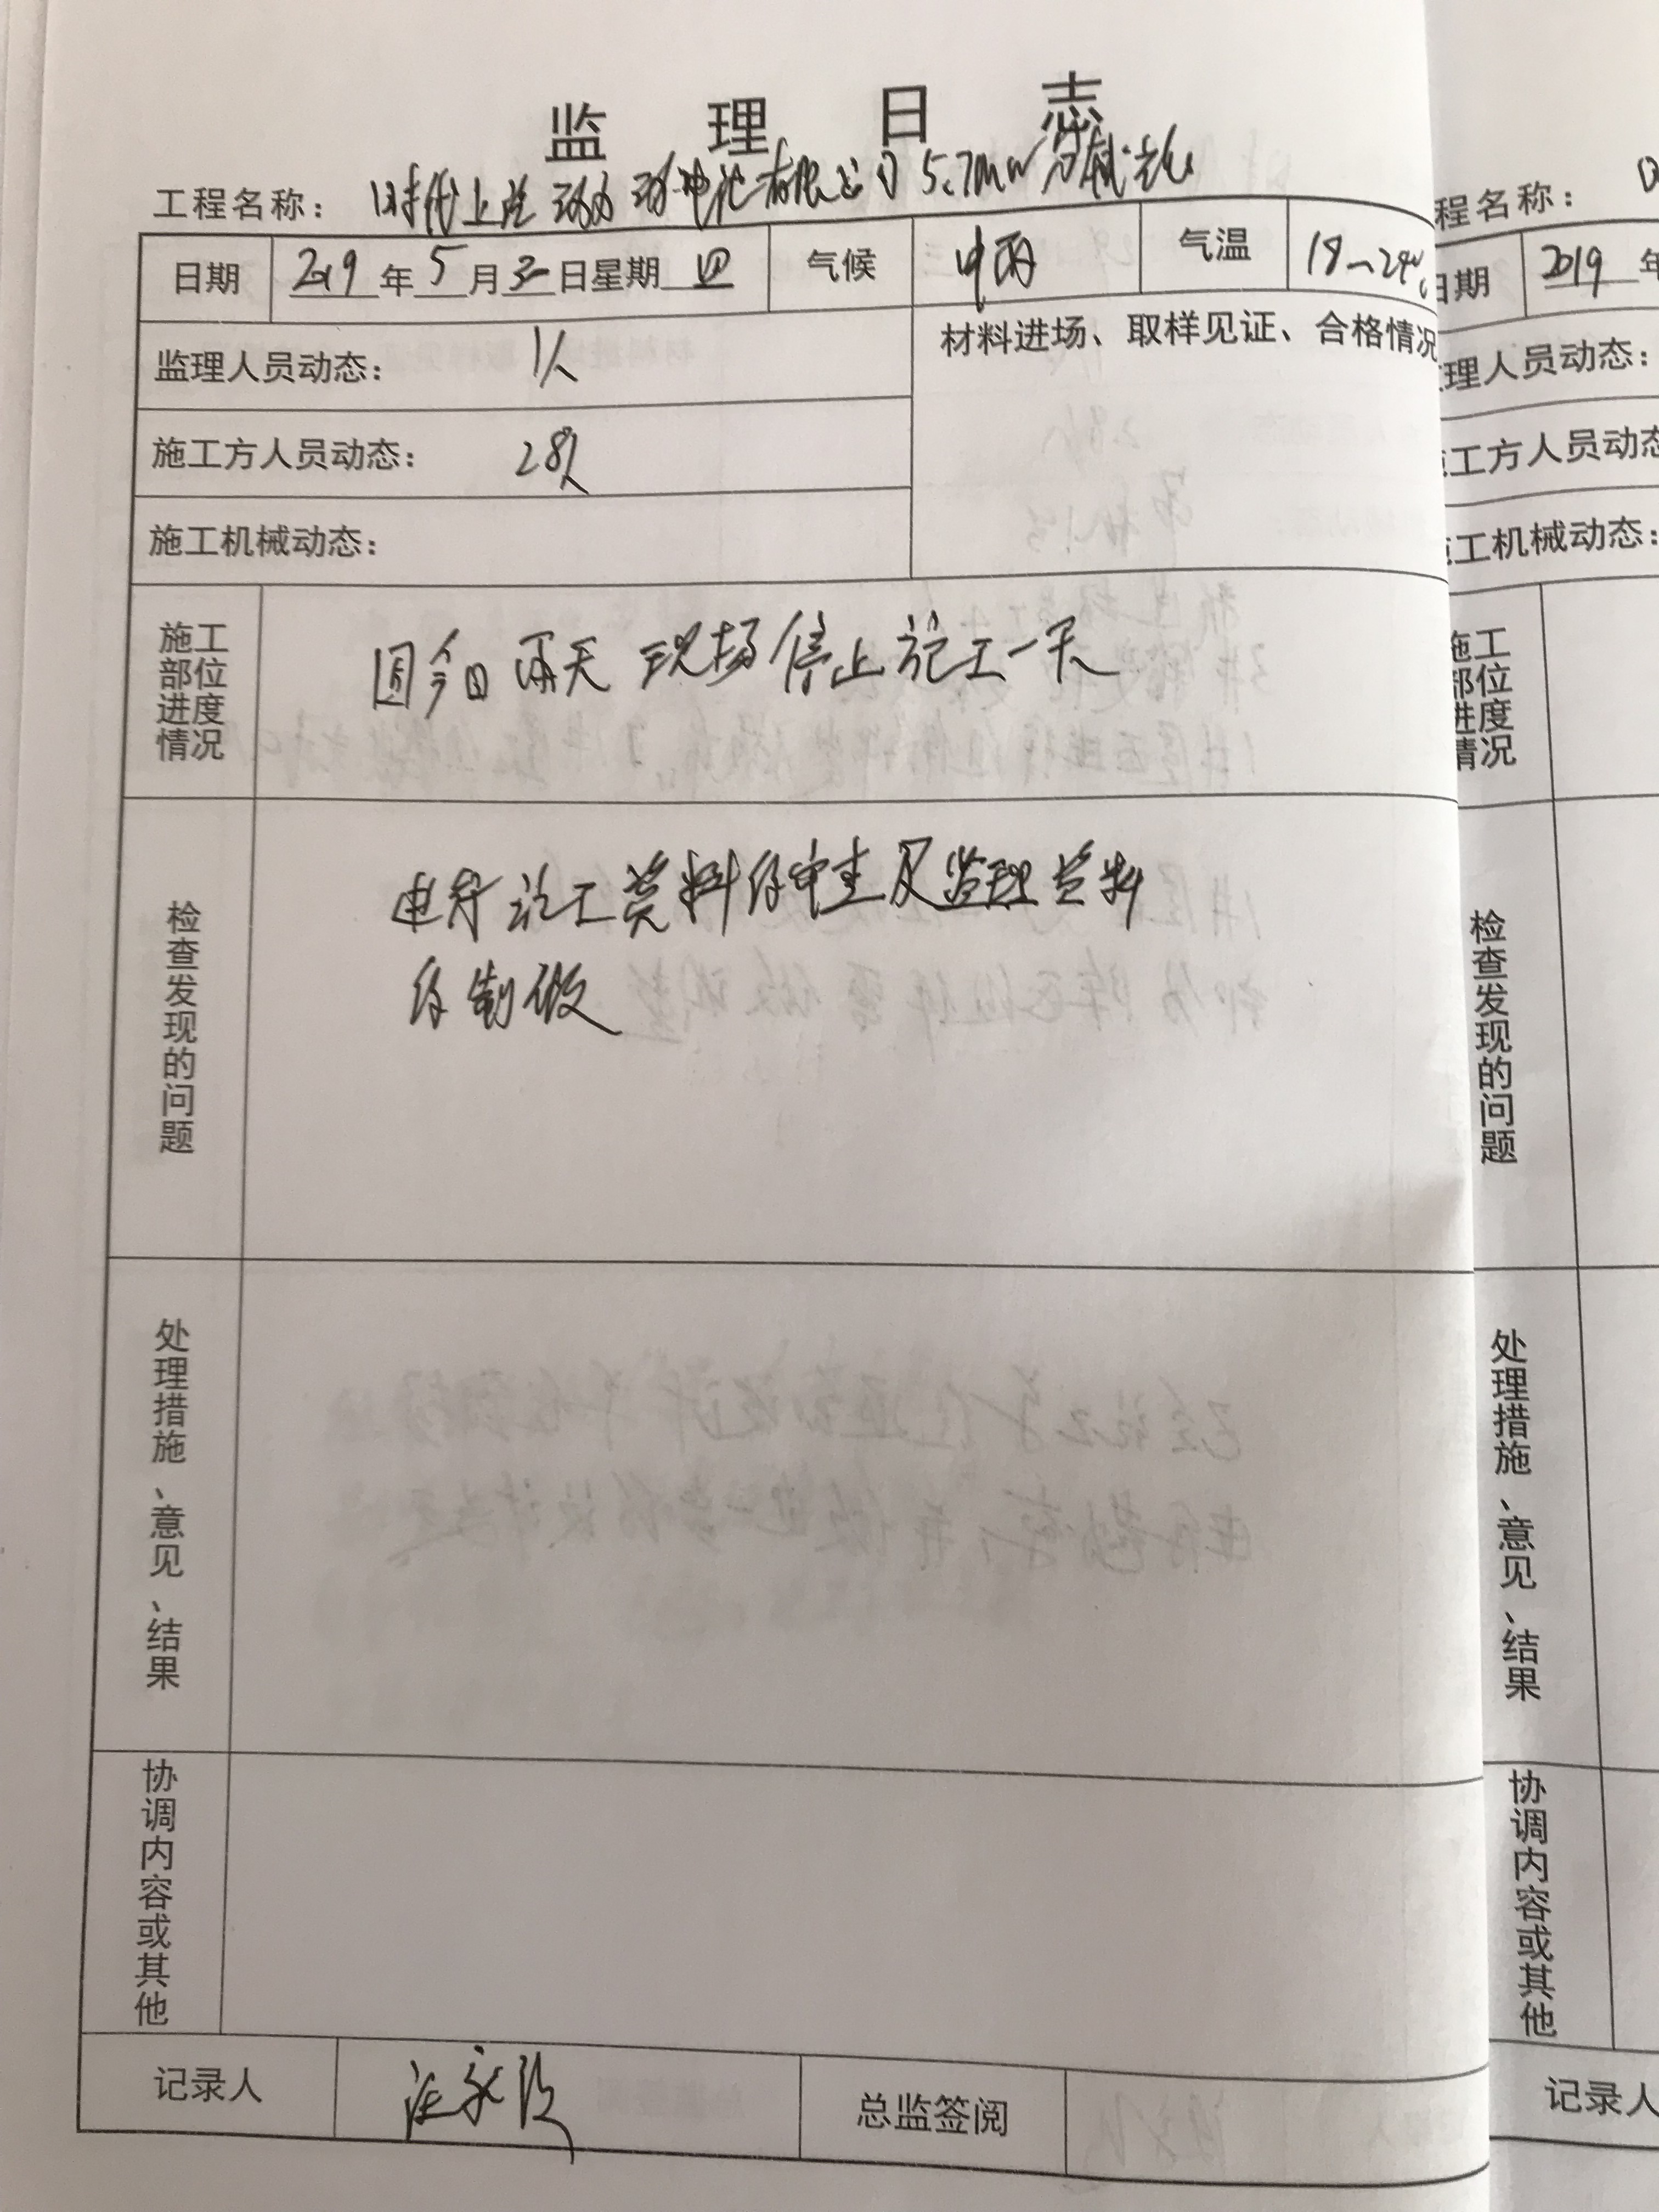 监理日志
工程名称： 时代上汽动力电池有限公司5.7MW分布式光伏
日期 2019年5月30日星期四 气候 中雨 气温 18~24℃
监理人员动态： 1人 材料进场、取样见证、合格情况
施工方人员动态： 28人
施工机械动态：
施工部位进度情况 因今日雨天 现场停止施工一天
检查发现的问题 进行施工资料的审查及监理资料
的制做
处理措施、意见、结果
协调内容或其他
记录人 总监签阅
程名称：
日期 2019 年
理人员动态：
工方人员动态
工机械动态：
施工部位进度情况
检查发现的问题
处理措施、意见、结果
协调内容或其他
记录人